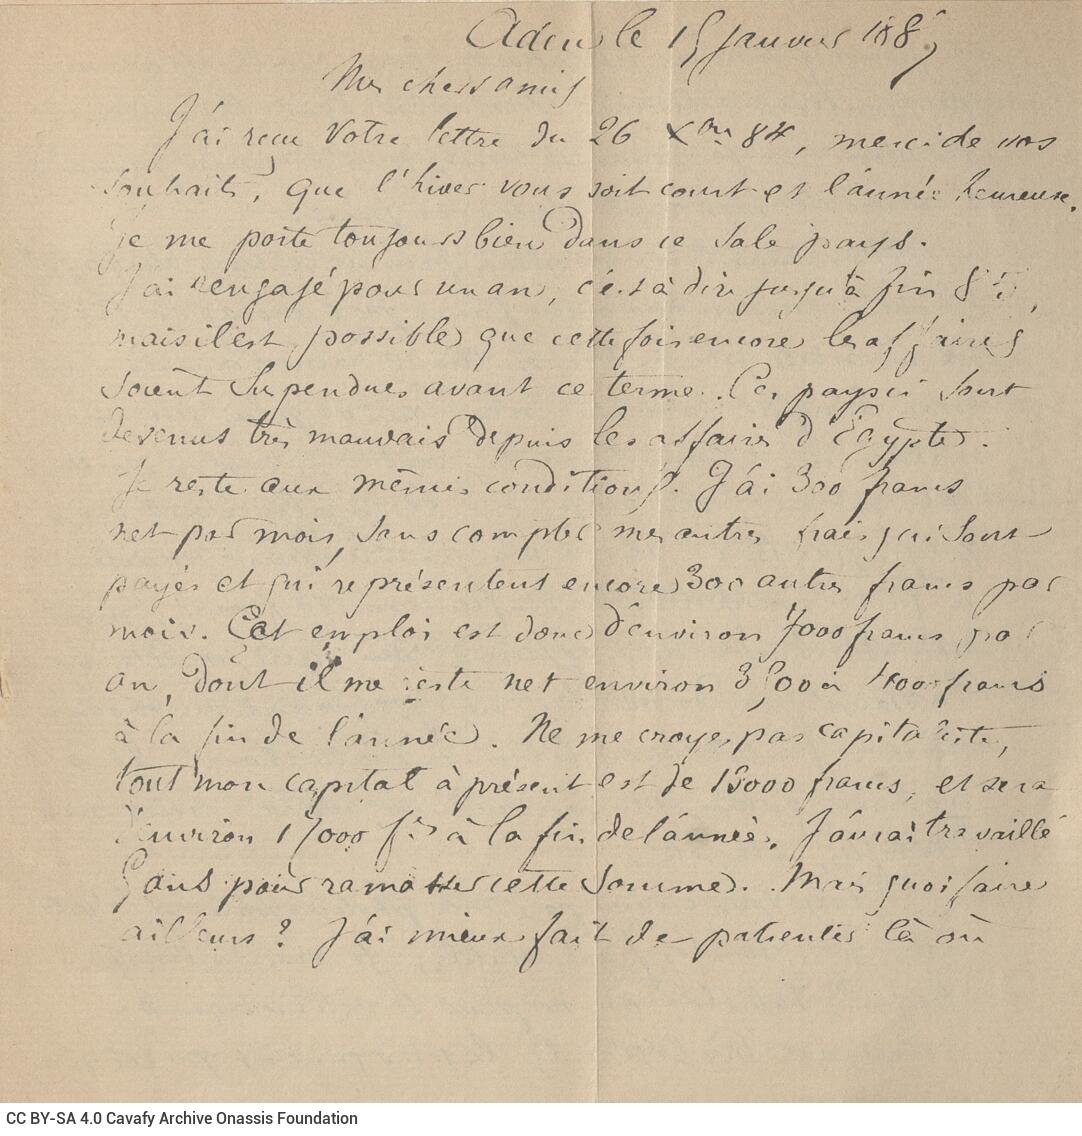 Aden le 15 janvier 1885
Mes chers amis
J'ai reçu votre lettre du 26 Xbre 84, merci de vos
souhaits, que l'hiver vous soit court et l'année heureuse.
Je me porte toujours bien dans ce sale pays.
J'ai rengagé pour un an, c'est à dire jusqu'à fin 85,
mais il est possible que cette fois encore les affaires
soient suspendues avant ce terme. Ces pays ci sont
devenus très mauvais depuis les affaires d'Egypte.
Je reste aux mêmes conditions. J'ai 300 francs
net par mois, sans compter mes autres frais qui sont
payés et qui représentent encore 300 autres francs par
mois. Cet emploi est donc d'environ 7000 francs par
an, dont il me reste net environ 3500 à 4000 francs
à la fin de l'année. Ne me croyez pas capitaliste,
tout mon capital à présent est de 13000 francs, et sera
d'environ 17000 fcs à la fin de l'année. J'aurai travaillé
5 ans pour ramasser cette somme. Mais quoi faire
ailleurs ? J'ai mieux fait de patienter là où
CC BY-SA 4.0 Cavafy Archive Onassis Foundation